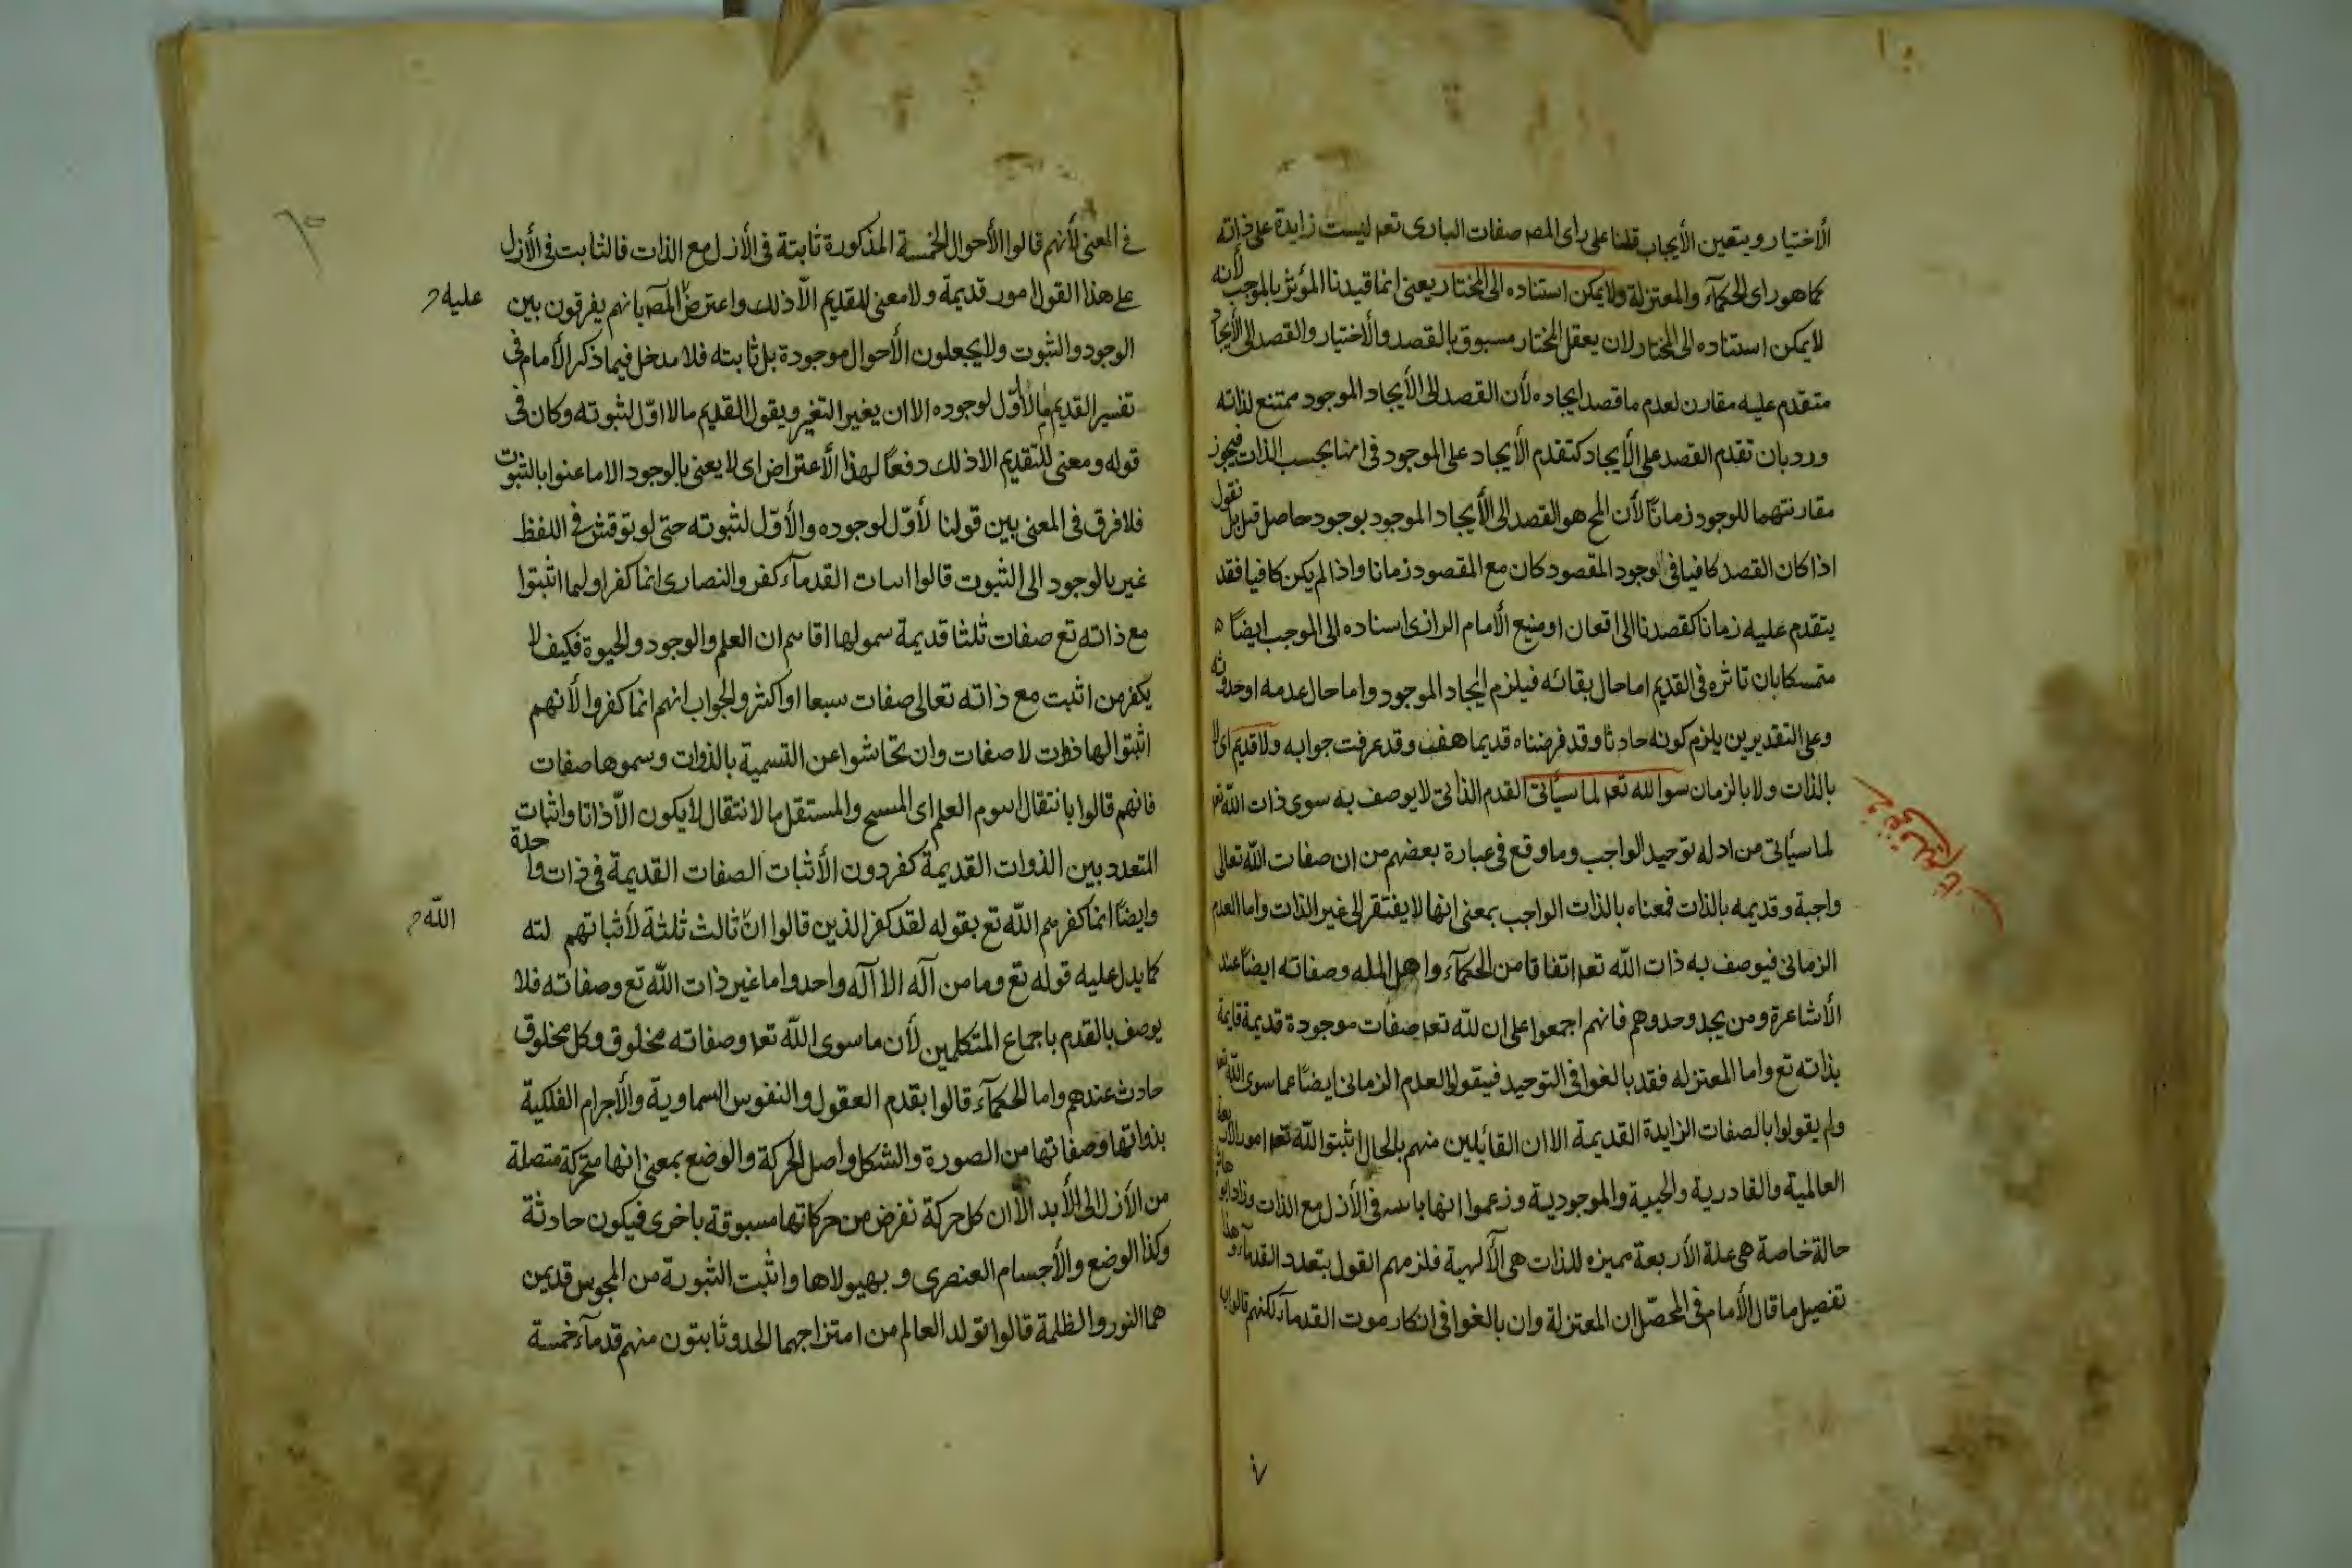 الأختيار ويتعين الأيجاب قلنا على راى المصـ صفات البارى تعـ ليست زايدة على ذاته
كما هو راى الحكمآء والمعتزلة ولا يمكن استناده الى المختار يعنى انما قيدنا المؤثر بالموجب لأنه
لا يمكن استناده الى المختار لان يعقل المختار مسبوق بالقصد والأختيار والقصد الى الأيجاد
متقدم عليه مقارن لعدم ما قصد ايجاده لأن القصد الى الأيجاد الموجود ممتنع لذاته
ورد بان تقدم القصد على الأيجاد كتقدم الأيجاد على الموجود فى انها بحسب الذات فيجوز
مقارنتهما للوجود زمانًا لأن المح هو القصد الى الأيجاد الموجود بوجود حاصل قبل بل نقول
اذا كان القصد كافيا فى الوجود المقصود كان مع المقصود زمانا واذا لم يكن كافيا فقد
يتقدم عليه زمانا كقصدنا الى اقعان او منيع الأمام الرازى اسناده الى الموجب ايضًا
متمسكا بان تاثره فى القديم اما حال بقائه فيلزم ايجاد الموجود واما حال عدمه او حدوثه
وعلى التقديرين يلزم كونه حادثا وقد فرضناه قديما هف وقد عرفت جوابه ولا قديم اى لا
بالذات ولا بالزمان سوا لله تعـ لما سيأتى القدم الذاتى لا يوصف به سوى ذات الله تعـ
لما سيأتى من ادله توحيد الواجب وما وقع فى عبارة بعضهم من ان صفات الله تعالى
واجبة وقديمه بالذات فمعناه بالذات الواجب بمعنى انها لا يفتقر الى غير الذات واما العدم
الزمانى فيوصف به ذات الله تعـ اتفاقا من الحكمآء واهل المله وصفاته ايضًا عند
الأشاعرة ومن يجد وحدوهم فانهم اجمعوا على ان لله تعـ صفات موجودة قديمة قايمة
بذاته تع واما المعتزله فقد بالغوا فى التوحيد فيقولوا العدم الزمانى ايضًا عما سوى الله تعـ
ولم يقولوا بالصفات الزايدة القديمة الا ان القائلين منهم بالحال اثبتوا لله تعـ امورا اربعة
العالمية والقادرية والحيية والموجودية وزعموا انها فى الأزل مع الذات وزاد ابو هاشم
حالة خاصة هى علة الأربعة مميزه للذات هى الآلهية فلزمهم القول بتعدد القدمآء وهذا
تفصيل ما قال الأمام فى المحصّل ان المعتزلة وان بالغوا فى انكار موت القدمآء لكنهم قالوا به
فى المعنى لأنهم قالوا الأحوال الخمسة المذكورة ثابتة فى الأزل مع الذات فالثابت فى الأزل
على هذا القول امور قديمة ولا معنى للقديم الّا ذلك واعترض المصـ بانهم يفرقون بين
عليه
الوجود والثبوت ولا يجعلون الأحوال موجودة بل ثابته فلا مدخل فيما ذكر الأمام فى
تفسير القديم ما لا أوّل لوجوده الا ان يغير التغير ويقول القديم مالا اوّل لثبوته وكان فى
قوله ومعنى للتقديم الا ذلك دفعًا لهذا الأعتراض اى لا يعنى بالوجود الا ما عنوا بالثبوت
فلا فرق فى المعنى بين قولنا لا أوّل لوجوده والأوّل لثبوته حتى لو بوقتش فى اللفظ
غير بالوجود الى الثبوت قالوا اسات القدمآء كفر والنصارى انما كفرا ولما اثبتوا
مع ذاته تع صفات ثلثا قديمة سمولها اقاسم ان العلم والوجود والحيوة فكيف لا
يكفر من اثبت مع ذاته تعالى صفات سبعا او اكثر والجواب انهم انما كفروا لأنهم
اثبتوا لها ذوات لا صفات وان تحاشوا عن التسمية بالذوات وسموها صفات
فانهم قالوا بانتقال اسوم العلم اى المسيح والمستقل بالانتقال لا يكون الّا ذاتا واثبات
المتعدد بين الذوات القديمة كفر دون الأثبات الصفات القديمة فى ذات واحدة
وايضًا انما كفرهم الله تع بقوله لقد كفر الذين قالوا انّ ثالث ثلثة لأثباتهم لته
الله
كما يدل عليه قوله تع وما من آله الا آله واحد واما غير ذات الله تع وصفاته فلا
يوصف بالقدم باجماع المتكلمين لأن ما سوى الله تعـ وصفاته مخلوق وكل مخلوق
حادث عندهم واما الحكمآء قالوا بقدم العقول والنفوس السماوية والأجرام الفلكية
بذواتها وصفاتها من الصورة والشكل واصل الحركة والوضع بمعنى انها متحركة متصلة
من الأزل الى الأبد الّا ان كل حركة نفرض من حركاتها مسبوقة باخرى فيكون حادثة
وكذا الوضع والأجسام العنصرى وبهيولاها واثبت الثبورة من المجوس قديمن
هما النور والظلمة قالوا تولد العالم من امتزاجهما الحدوثا يتون منهم قدمآء خمسة